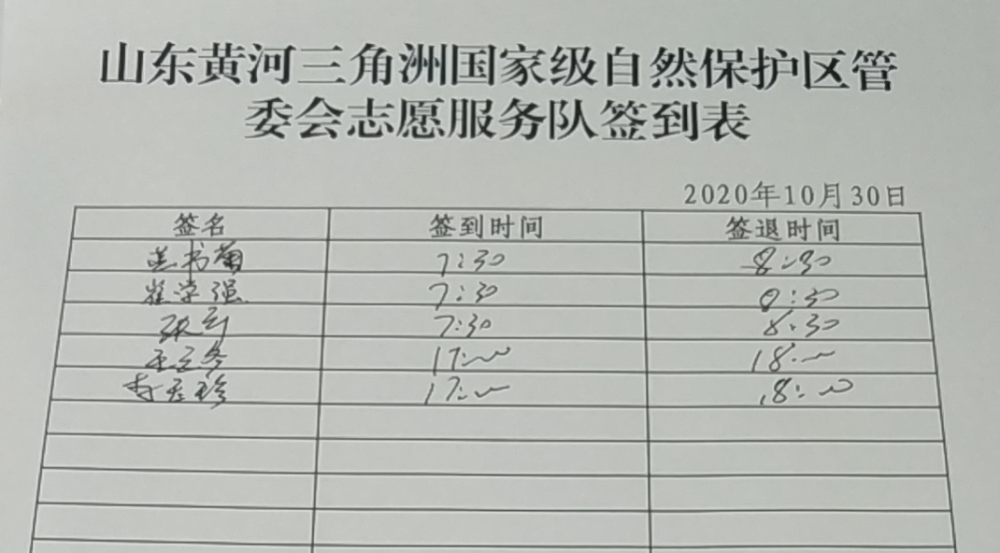 山东黄河三角洲国家级自然保护区管
委会志愿服务队签到表
2020年10月30日
签名 签到时间 签退时间
书菊 7:30 8:30
崔学强 7:30 8:30
张 7:30 8:30
王立冬 17:00 18:00
李 珍 17:00 18:00